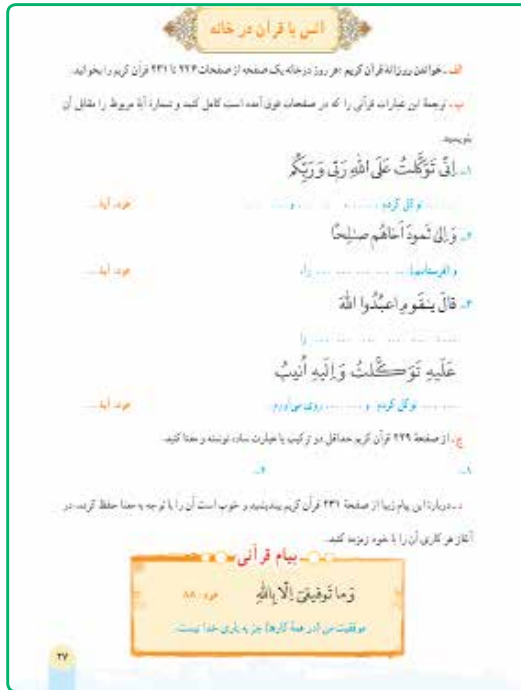 انس با قرآن در خانه
الف ـ خواندن روزانهٔ قرآن کریم: هر روز در خانه یک صفحه از صفحات ۲۲۴ تا ۲۳۱ قرآن کریم را بخوانید.
ب ـ ترجمهٔ این عبارات قرآنی را که در صفحات فوق آمده است کامل کنید و شمارهٔ آیهٔ مربوط را مقابل آن
بنویسید.
۱ـ اِنّی تَوَکَّلتُ عَلَی اللّٰهِ رَبّی وَ رَبِّکُم
........ توکل کردم ........ و ........ هود، آیهٔ ...
۲ـ وَ اِلیٰ ثَمودَ اَخاهُم صٰلِحًا
و (فرستادیم) ........ را. هود، آیهٔ ...
۳ـ قالَ یٰقَومِ اعبُدُوا اللّٰهَ
........ را
عَلَیهِ تَوَکَّلتُ وَ اِلَیهِ اُنیبُ
........ توکل کردم و ........ روی می‌آورم. هود، آیهٔ ...
ج ـ از صفحهٔ ۲۲۹ قرآن کریم حداقل دو ترکیب یا عبارت ساده نوشته و معنا کنید.
۱ـ ۲ـ
د ـ دربارهٔ این پیام زیبا از صفحهٔ ۲۳۱ قرآن کریم بیندیشید و خوب است آن را با توجه به معنا حفظ کرده، در
آغاز هر کاری آن را با خود زمزمه کنید.
پیام قرآنی
وَ ما تَوفیقی اِلّا بِاللّٰهِ هود، ۸۸
موفقیت من (در همهٔ کارها) جز به یاری خدا نیست.
۲۷